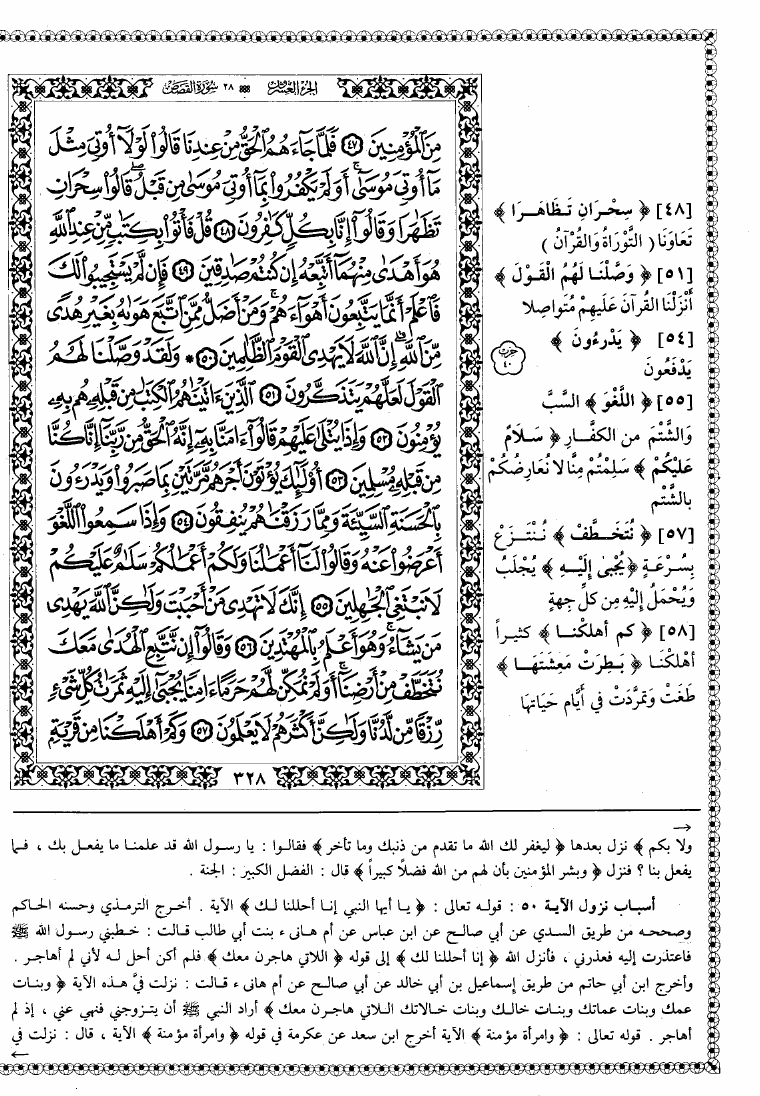 الجزء العشرون ٢٨ سورة القصص
مِنَ ٱلْمُؤْمِنِينَ ٤٧ فَلَمَّا جَآءَهُمُ ٱلْحَقُّ مِنْ عِندِنَا قَالُوا۟ لَوْلَآ أُوتِىَ مِثْلَ
مَآ أُوتِىَ مُوسَىٰٓ ۚ أَوَلَمْ يَكْفُرُوا۟ بِمَآ أُوتِىَ مُوسَىٰ مِن قَبْلُ ۖ قَالُوا۟ سِحْرَانِ
تَظَٰهَرَا وَقَالُوٓا۟ إِنَّا بِكُلٍّ كَٰفِرُونَ ٤٨ قُلْ فَأْتُوا۟ بِكِتَٰبٍ مِّنْ عِندِ ٱللَّهِ
هُوَ أَهْدَىٰ مِنْهُمَآ أَتَّبِعْهُ إِن كُنتُمْ صَٰدِقِينَ ٤٩ فَإِن لَّمْ يَسْتَجِيبُوا۟ لَكَ
فَٱعْلَمْ أَنَّمَا يَتَّبِعُونَ أَهْوَآءَهُمْ ۚ وَمَنْ أَضَلُّ مِمَّنِ ٱتَّبَعَ هَوَىٰهُ بِغَيْرِ هُدًى
مِّنَ ٱللَّهِ ۚ إِنَّ ٱللَّهَ لَا يَهْدِى ٱلْقَوْمَ ٱلظَّٰلِمِينَ ٥٠ ۞ وَلَقَدْ وَصَّلْنَا لَهُمُ
ٱلْقَوْلَ لَعَلَّهُمْ يَتَذَكَّرُونَ ٥١ ٱلَّذِينَ ءَاتَيْنَٰهُمُ ٱلْكِتَٰبَ مِن قَبْلِهِۦ هُم بِهِۦ
يُؤْمِنُونَ ٥٢ وَإِذَا يُتْلَىٰ عَلَيْهِمْ قَالُوٓا۟ ءَامَنَّا بِهِۦٓ إِنَّهُ ٱلْحَقُّ مِن رَّبِّنَآ إِنَّا كُنَّا
مِن قَبْلِهِۦ مُسْلِمِينَ ٥٣ أُو۟لَٰٓئِكَ يُؤْتَوْنَ أَجْرَهُم مَّرَّتَيْنِ بِمَا صَبَرُوا۟ وَيَدْرَءُونَ
بِٱلْحَسَنَةِ ٱلسَّيِّئَةَ وَمِمَّا رَزَقْنَٰهُمْ يُنفِقُونَ ٥٤ وَإِذَا سَمِعُوا۟ ٱللَّغْوَ
أَعْرَضُوا۟ عَنْهُ وَقَالُوا۟ لَنَآ أَعْمَٰلُنَا وَلَكُمْ أَعْمَٰلُكُمْ سَلَٰمٌ عَلَيْكُمْ
لَا نَبْتَغِى ٱلْجَٰهِلِينَ ٥٥ إِنَّكَ لَا تَهْدِى مَنْ أَحْبَبْتَ وَلَٰكِنَّ ٱللَّهَ يَهْدِى
مَن يَشَآءُ ۚ وَهُوَ أَعْلَمُ بِٱلْمُهْتَدِينَ ٥٦ وَقَالُوٓا۟ إِن نَّتَّبِعِ ٱلْهُدَىٰ مَعَكَ
نُتَخَطَّفْ مِنْ أَرْضِنَآ ۚ أَوَلَمْ نُمَكِّن لَّهُمْ حَرَمًا ءَامِنًا يُجْبَىٰٓ إِلَيْهِ ثَمَرَٰتُ كُلِّ شَىْءٍ
رِّزْقًا مِّن لَّدُنَّا وَلَٰكِنَّ أَكْثَرَهُمْ لَا يَعْلَمُونَ ٥٧ وَكَمْ أَهْلَكْنَا مِن قَرْيَةٍۭ
٣٢٨
[٤٨] ﴿ سِحْرَانِ تَظَاهَرَا ﴾
تَعَاوَنَا ( التَّوْرَاةُ وَالقُرْآنُ )
[٥١] ﴿ وَصَّلْنَا لَهُمُ الْقَوْلَ ﴾
أَنْزَلْنَا القُرآنَ عَلَيهِمْ مُتَواصِلا
[٥٤] ﴿ يَدْرءُونَ ﴾
يَدْفَعُونَ
حزب ٤٠
[٥٥] ﴿ اللَّغْوَ ﴾ السَّبَّ
وَالشَّتْمَ من الكفَّارِ ﴿ سَلَامٌ
عَلَيْكُمْ ﴾ سَلِمْتُمْ مِنَّا لا نُعَارِضُكُمْ
بالشَّتْمِ
[٥٧] ﴿ نُتَخَطَّفْ ﴾ نُنْتَزَعْ
بِسُرْعَةٍ ﴿ يُجْبَى إِلَيْهِ ﴾ يُجْلَبُ
وَيُحْمَلُ إِلَيْهِ مِن كلِّ جِهةٍ
[٥٨] ﴿ كم أهلكنا ﴾ كثيراً
أَهْلَكْنَا ﴿ بَطِرَتْ مَعِشَتَهَا ﴾
طَغَتْ وَتَمَرَّدَتْ فِي أَيَّام حَيَاتِهَا
ولا بكم ﴾ نزل بعدها ﴿ ليغفر لك الله ما تقدم من ذنبك وما تأخر ﴾ فقالـوا : يا رسـول الله قد علمنـا ما يفعـل بك ، فـما
يفعل بنا ؟ فنزل ﴿ وبشر المؤمنين بأن لهم من الله فضلًا كبيراً ﴾ قال : الفضل الكبير : الجنة .
أسبـاب نزول الآيـة ٥٠ : قولـه تعالى : ﴿ يـا أيها النبي إنـا أحللنا لـك ﴾ الآية . أخـرج الترمـذي وحسنه الحـاكم
وصححـه من طريق السـدي عن أبي صالـح عن ابن عباس عن أم هانىء بنت أبي طالب قـالت : خـطبني رسـول الله ﷺ
فاعتذرت إليه فعذرني ، فأنزل الله ﴿ إنا أحللنا لك ﴾ إلى قوله ﴿ اللاتي هاجرن معك ﴾ فلم أكن أحل لـه لأني لم أهاجـر .
وأخرج ابن أبي حاتم من طريق إسماعيل بن أبي خالد عن أبي صالح عن أم هانىء قـالت : نزلت فيّ هـذه الآية ﴿ وبنـات
عمك وبنات عماتك وبنـات خالـك وبنات خـالاتك الـلاتي هاجـرن معك ﴾ أراد النبي ﷺ أن يتـزوجني فنهي عني ، إذ لم
أهاجر . قوله تعالى : ﴿ وامرأة مؤمنة ﴾ الآية أخرج ابن سعد عن عكرمة في قوله ﴿ وامرأة مؤمنة ﴾ الآية ، قال : نزلت في